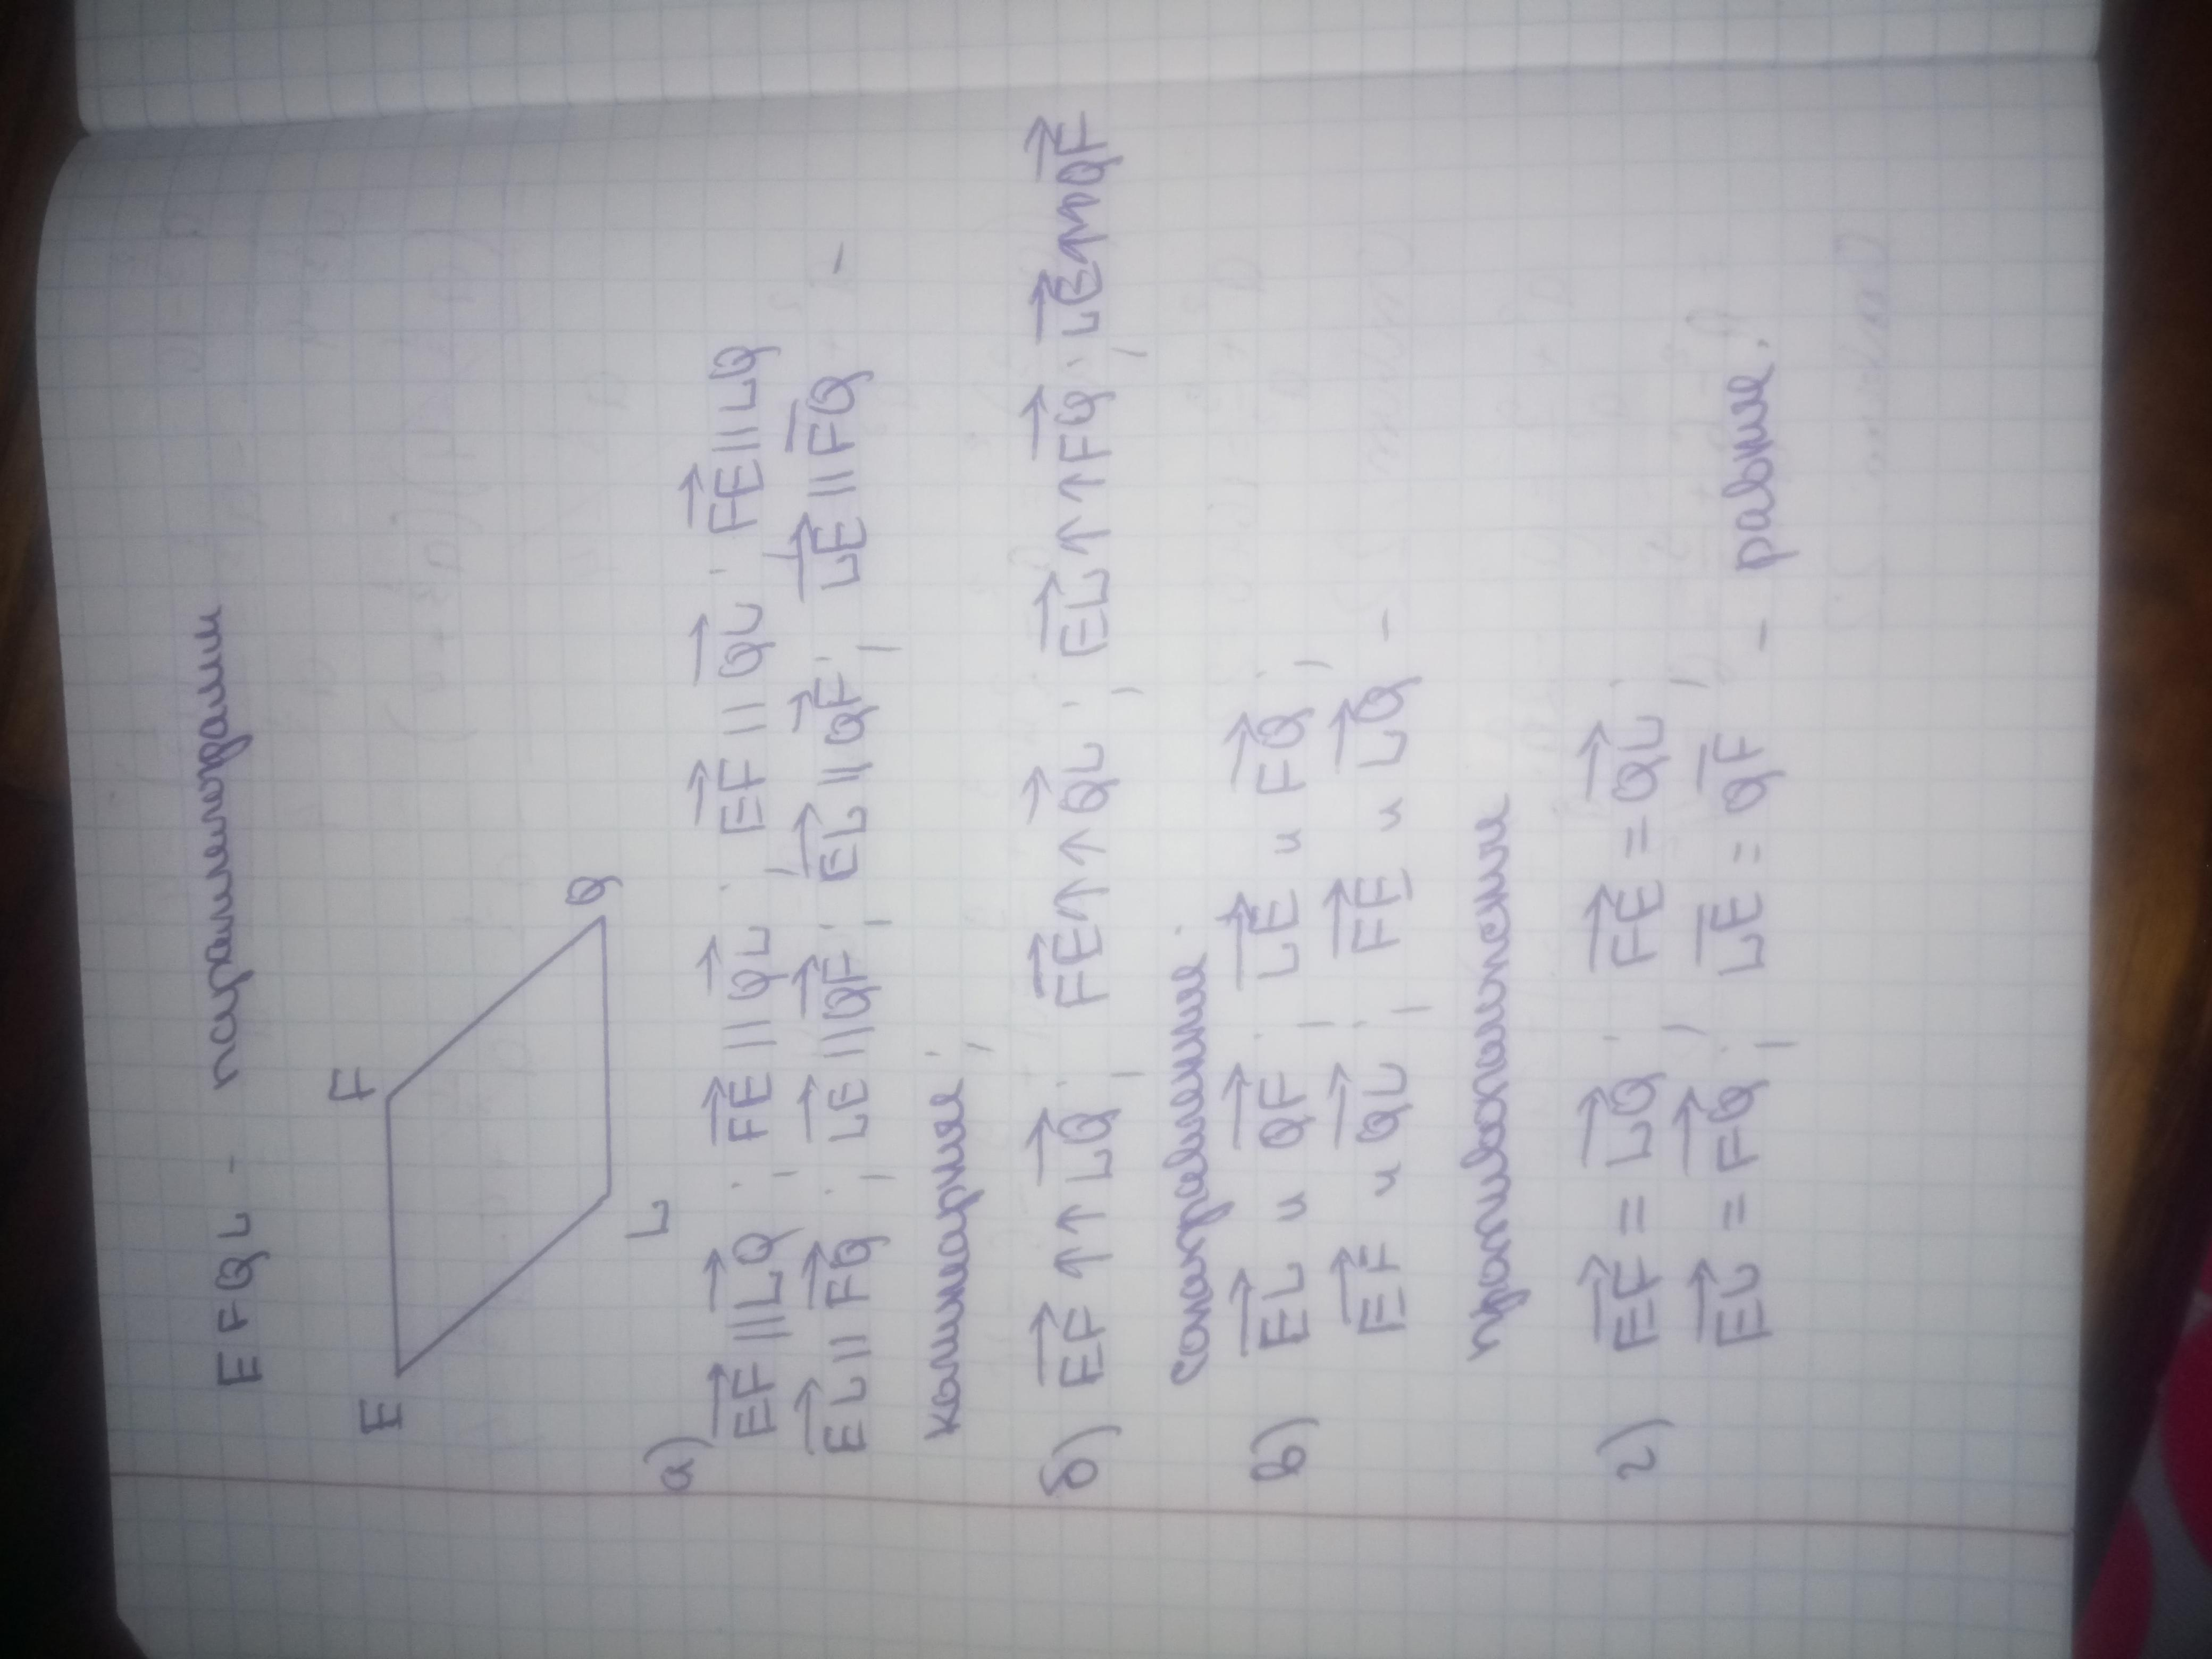 EFQL - параллелограмм
E F Q L
а)
EF⃗ || LQ⃗ ; FE⃗ || QL⃗ ; EF⃗ || QL⃗ ; FE⃗ || LQ
EL⃗ || FQ⃗ ; LE⃗ || QF⃗ ; EL⃗ || QF⃗ ; LE⃗ || FQ –
коллинеарные;
б) EF⃗ ↑↑ LQ⃗ ; FE⃗ ↑↑ QL⃗ ; EL⃗ ↑↑ FQ⃗ ; LE⃗ ↑↑ QF⃗
сонаправленные.
в) EL⃗ и QF⃗ ; LE⃗ и FQ⃗ ;
EF⃗ и QL⃗ ; FE⃗ и LQ⃗ –
г) EF⃗ = LQ⃗ ; FE⃗ = QL⃗ ;
EL⃗ = FQ⃗ ; LE = QF – равные.